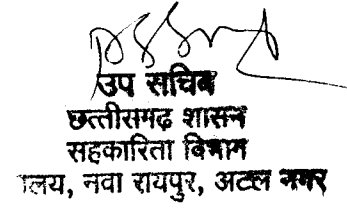 उप सचिव
छत्तीसगढ़ शासन
सहकारिता विभाग
ालय, नवा रायपुर, अटल नगर